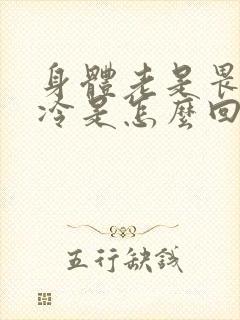 身體老是畏
冷是怎麼回
五行缺錢